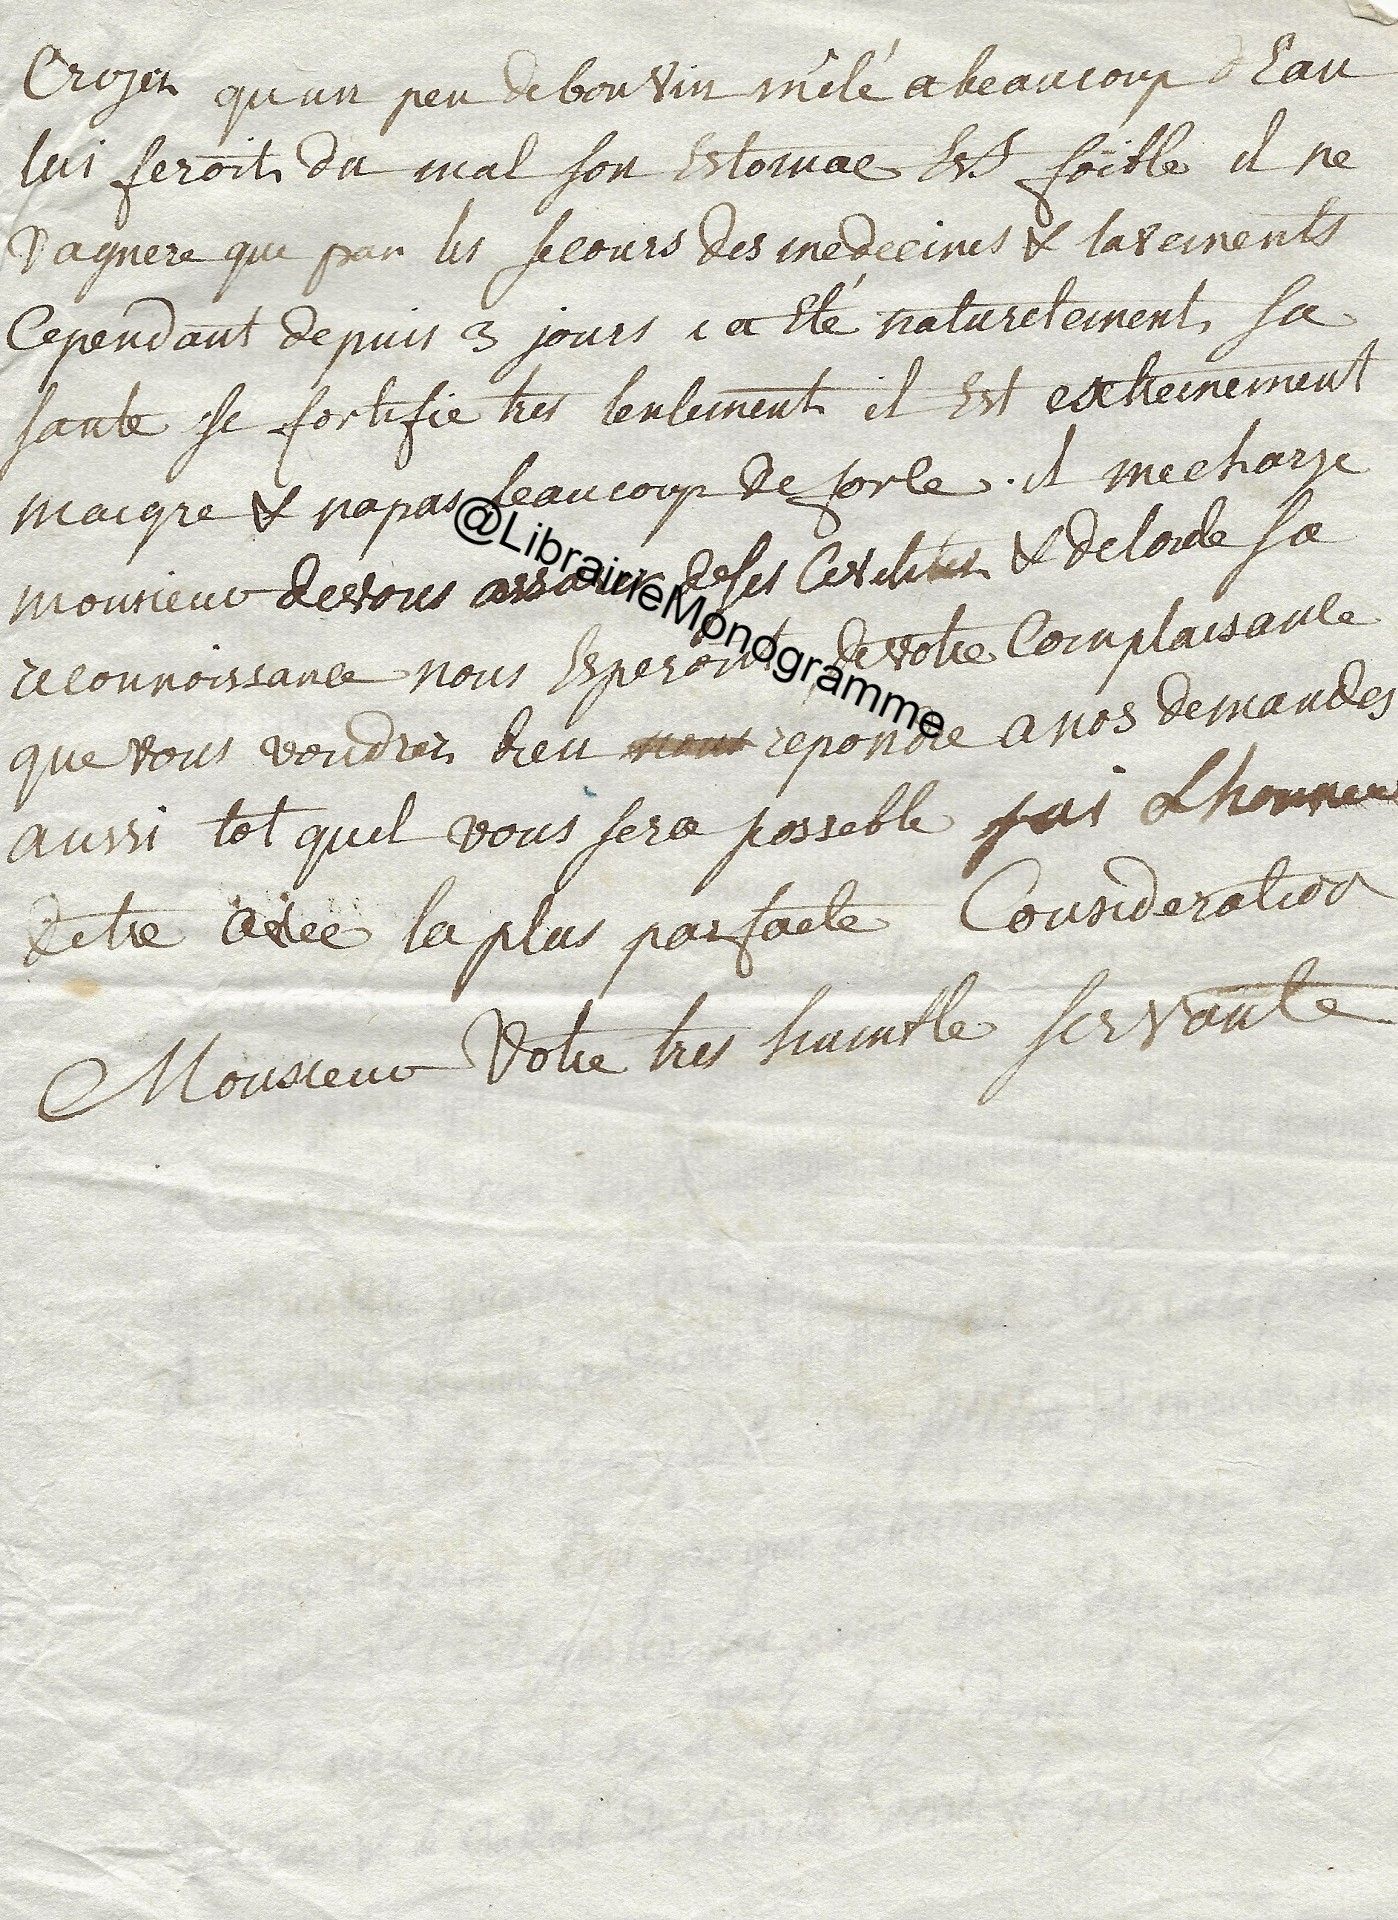 Croyen qu un peu de bon Vin melé a beaucoup d Eau
lui feroit du mal son Estomac Est foible il ne
Vaguere que par les secours des medecines & lavements
Cependant depuis 3 jours i a Eté naturelement sa
santé se fortifie tres lentement il Est extremement
maigre & napas beaucoup de force . il mecharge
monsieur de vous assurer de ses Civilites & de toute sa
reconnoissance nous Esperons de votre Complaisance
que vous voudrez bien nous repondre a nos demandes
aussi tot quel vous sera possible jai Lhonneur
detre avec la plus parfaite Consideration
Monsieur Votre tres humble servante
@LibrairieMonogramme